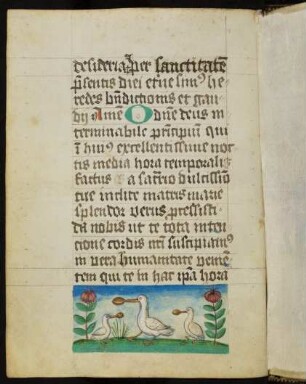 desideria. Per sanctitatē
pñtis diei et sue seruus he
redes bñdictionis et gau
dij Amē O dñe deus in
terminabile principiū qui
ī huius excellentissime noc
tis media hora temporalis
factus
tue inclite matris marie
splendor verus processisti
da nobis ut te tota inten
cione cordis nr̄i suscipiamus
in vera humanitate venien
tem qui te in hac ip̄a hora